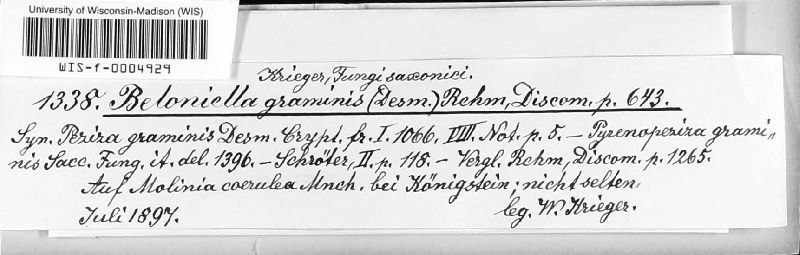 University of Wisconsin-Madison (WIS)
WIS-f-0004929
Krieger, Fungi saxonici.
1338. Beloniella graminis (Desm.) Rehm, Discom. p. 643.
Syn. Peziza graminis Desm. Crypt. fr. I. 1066, VIII. Not. p. 5. – Pyrenopeziza grami-
nis Sacc. Fung. it. del. 1396. – Schröter, II. p. 118. – Vergl. Rehm, Discom. p. 1265.
Auf Molinia coerulea Mnch. bei Königstein; nicht selten.
Juli 1897.
leg. W. Krieger.